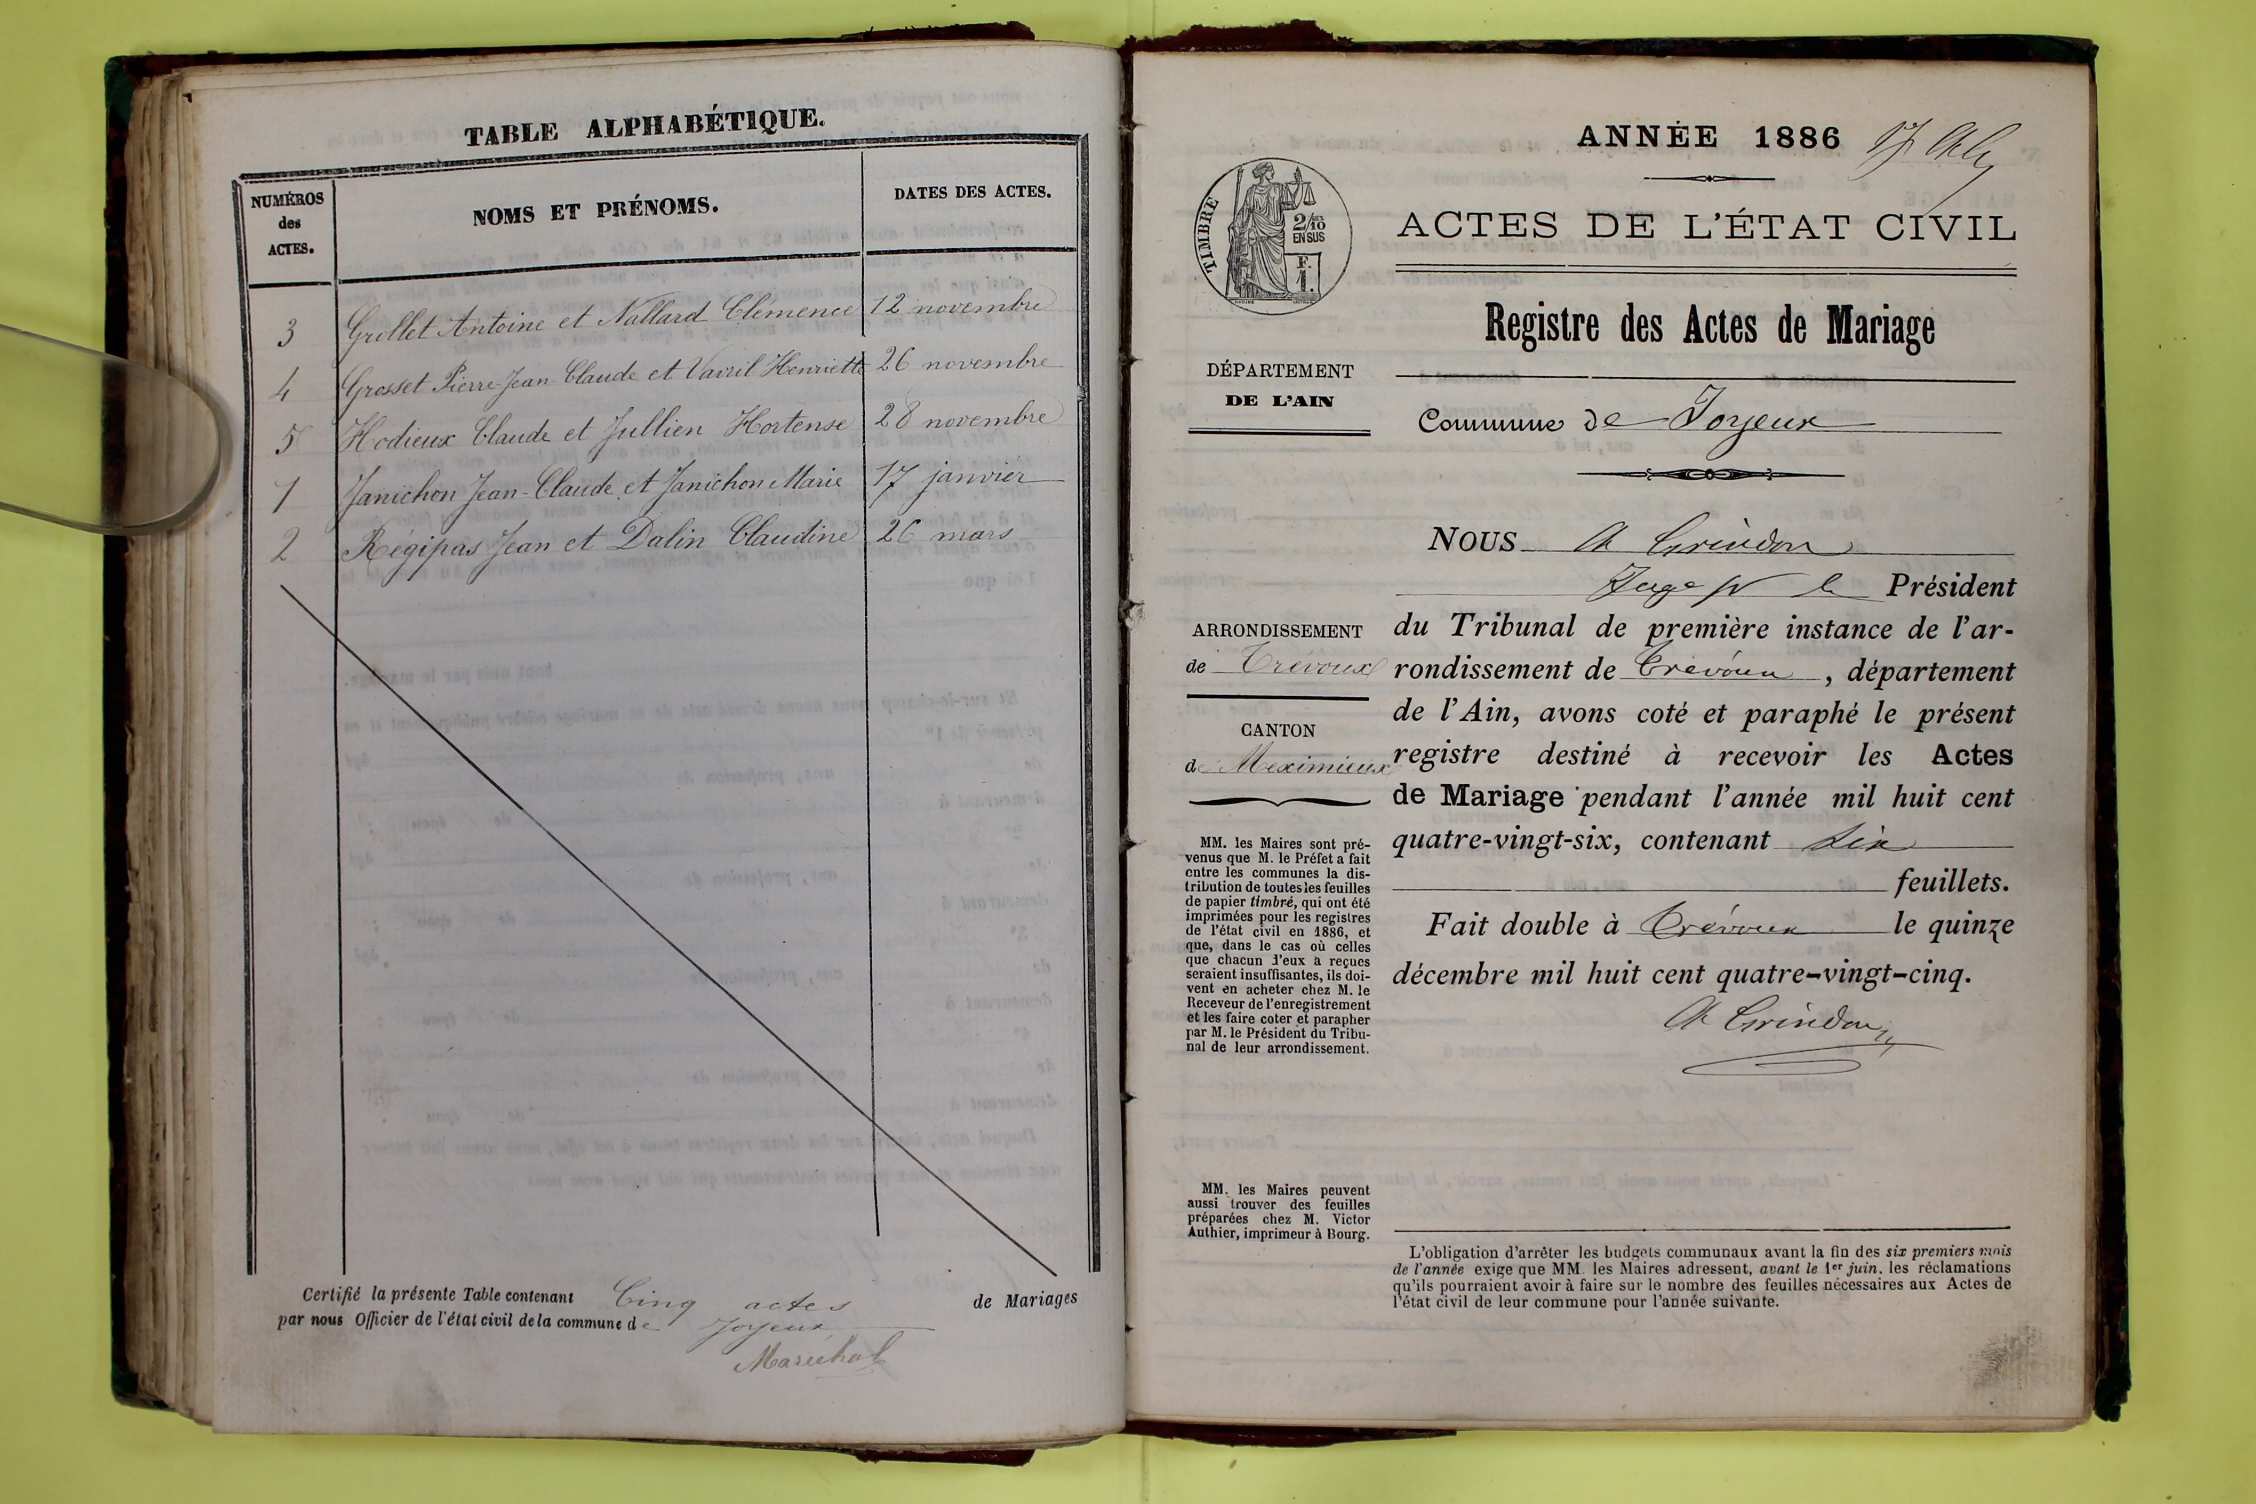 TABLE ALPHABÉTIQUE.
NUMÉROS
des
ACTES.
NOMS ET PRÉNOMS.
DATES DES ACTES.
3 Grillet Antoine et Nallard Clémence 12 novembre
4 Grosset Pierre-Jean-Claude et Vavril Henriette 26 novembre
5 Hodieux Claude et Jullien Hortense 28 novembre
1 Janichon Jean-Claude et Janichon Marie 17 janvier
2 Régipas Jean et Dalin Claudine 26 mars
Certifié la présente Table contenant Cinq actes de Mariages
par nous Officier de l'état civil de la commune de Joyeux
Maréchal
ANNÉE 1886
TIMBRE
2/10
EN SUS
F.
1.
ACTES DE L'ÉTAT CIVIL
Registre des Actes de Mariage
DÉPARTEMENT
DE L'AIN
Commune de Joyeux
ARRONDISSEMENT
de Trévoux
CANTON
de Meximieux
MM. les Maires sont pré-
venus que M. le Préfet a fait
entre les communes la dis-
tribution de toutes les feuilles
de papier timbré, qui ont été
imprimées pour les registres
de l'état civil en 1886, et
que, dans le cas où celles
que chacun d'eux a reçues
seraient insuffisantes, ils doi-
vent en acheter chez M. le
Receveur de l'enregistrement
et les faire coter et parapher
par M. le Président du Tribu-
nal de leur arrondissement.
MM. les Maires peuvent
aussi trouver des feuilles
préparées chez M. Victor
Authier, imprimeur à Bourg.
NOUS Ch Grindon
Juge pr le Président
du Tribunal de première instance de l'ar-
rondissement de Trévoux, département
de l'Ain, avons coté et paraphé le présent
registre destiné à recevoir les Actes
de Mariage pendant l'année mil huit cent
quatre-vingt-six, contenant six
feuillets.
Fait double à Trévoux le quinze
décembre mil huit cent quatre-vingt-cinq.
Ch Grindon
L'obligation d'arrêter les budgets communaux avant la fin des six premiers mois
de l'année exige que MM. les Maires adressent, avant le 1er juin, les réclamations
qu'ils pourraient avoir à faire sur le nombre des feuilles nécessaires aux Actes de
l'état civil de leur commune pour l'année suivante.